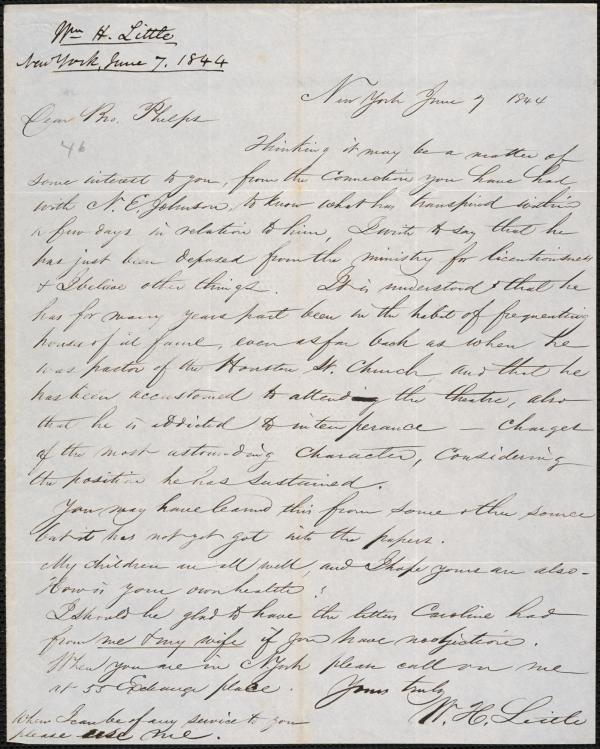 Wm H. Little
New York, June 7. 1844
New York June 7 1844
Dear Bro. Phelps
46
Thinking it may be a matter of
some interest to you, from the connection you have had
with N. E. Johnson, to know what has transpired within
a few days in relation to him, I write to say that he
has just been deposed from the ministry for licentiousness
& I believe other things. It is understood that he
has for many years past been in the habit of frequenting
houses of ill fame, even as far back as when he
was pastor of the Houston St. Church and that he
has been accustomed to attending the theatre, also
that he is addicted to intemperance — charges
of the most astounding character, considering
the position he has sustained.
You may have learned this from some other source
but it has not yet got into the papers.
My children are all well, and I hope yours are also -
How is your own health?
I should be glad to have the letters Caroline had
from me & my wife if you have no objection.
When you are in N. York please call on me
at 55 Exchange place. Yours truly
W. H. Little
When I can be of any service to you
please use me.